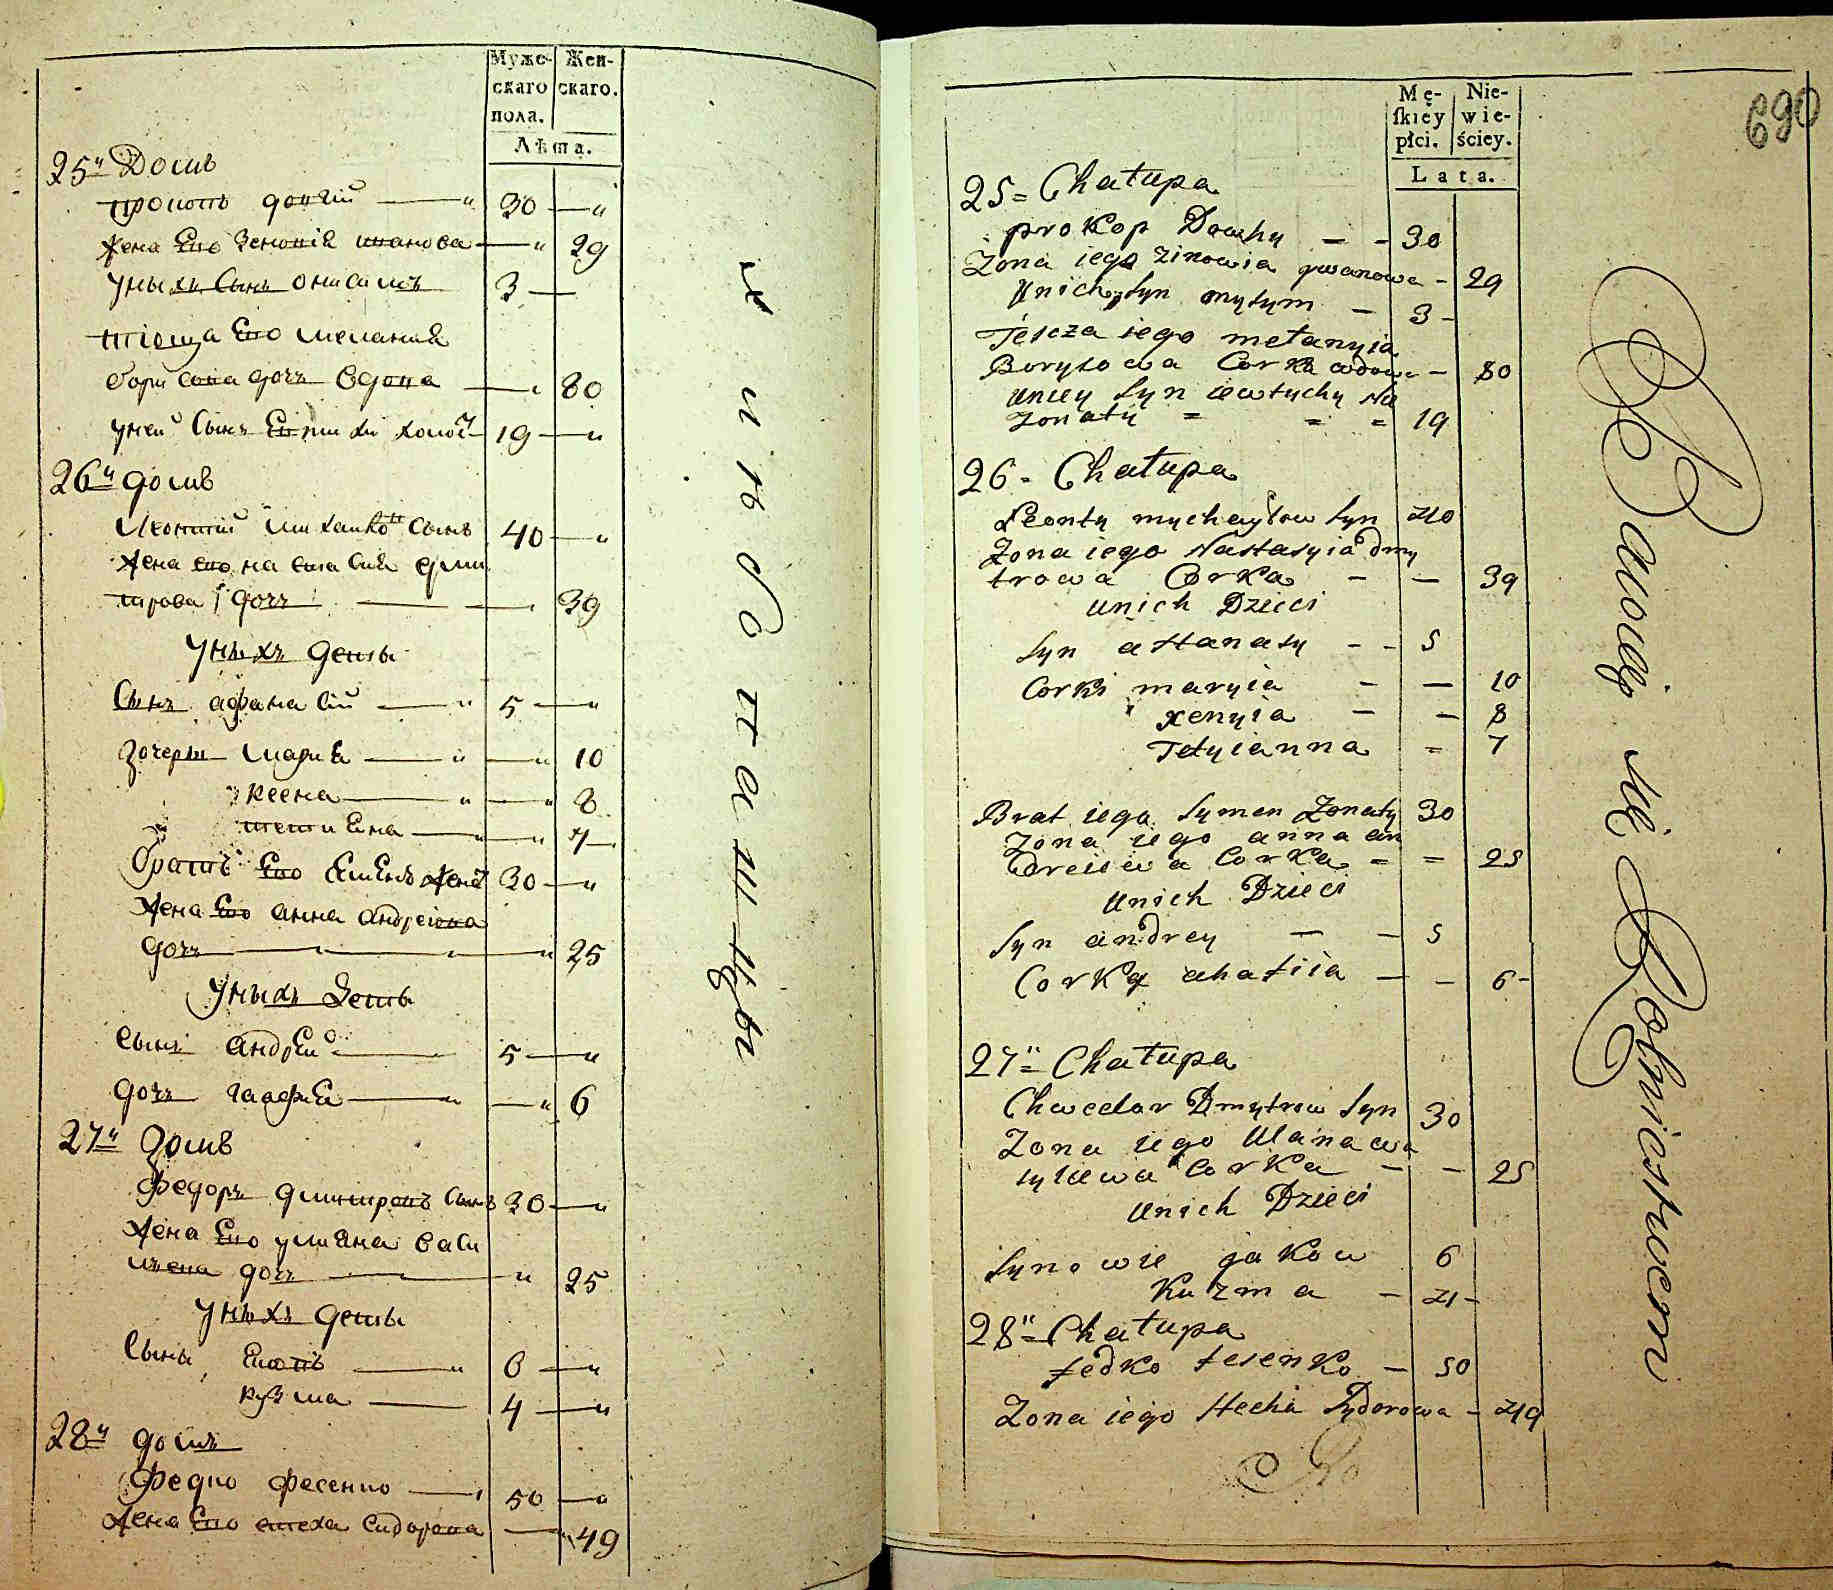 Муже- Жен-
скаго скаго.
пола.
Лѣта.
25й Домъ
Прокопъ довгій 30
Жена Его Зеновія иванова 29
Уныхъ Сынъ онисимъ 3
тіоща Его меланія
борисова дочь вдова 80
уней Сынъ Евтихи холос 19
26й домъ
Леонтій михайлов Сынъ 40
Жена его настасия дми
трова дочь 39
Уныхъ дети
Сынъ афанасій 5
дочери мария 10
ксенa 8
тетиена 7
братъ Его Семенъ жена 30
Жена Его анна андреева
дочь 25
Уныхъ дети
Сынъ андрей 5
дочь гаафия 6
27й домъ
Федоръ дмитровъ Сынъ 30
Жена Его улиана васи
лиева дочь 25
Уныхъ дети
Сыны Ековъ 6
кузма 4
28й домъ
Федко фесенко 50
Жена Его стеха Сидорова 49
690
Mę- Nie-
ſkiey wie-
płci. ściey.
Lata.
25 = Chałupa
prokop Dowhy 30
Zona iego zinowia ywanowa 29
Unich syn nysym 3
Tescza iego mełanyia
Borysowa Corka wdowa 80
uniey syn iewtychy Nie
Zonaty 19
26 - Chałupa
Leonty mychayłow syn 40
Zona iego Nastasyia dmy
trowa Corka 39
unich Dzieci
syn attanasy 5
Corki maryia 10
xenyia 8
Tetyianna 7
Brat iego symen Zonaty 30
Zona iego anna an
dreiewa Corka 25
unich Dzieci
syn andrey 5
Corka ahafiia 6
27 = Chałupa
Chwedor Dmytrow syn 30
Zona iego Ulana wa
sylewa Corka 25
unich Dzieci
synowie jakow 6
Kuzma 4
28 = Chałupa
fedko fesenko 50
Zona iego Stecha sydorowa 49